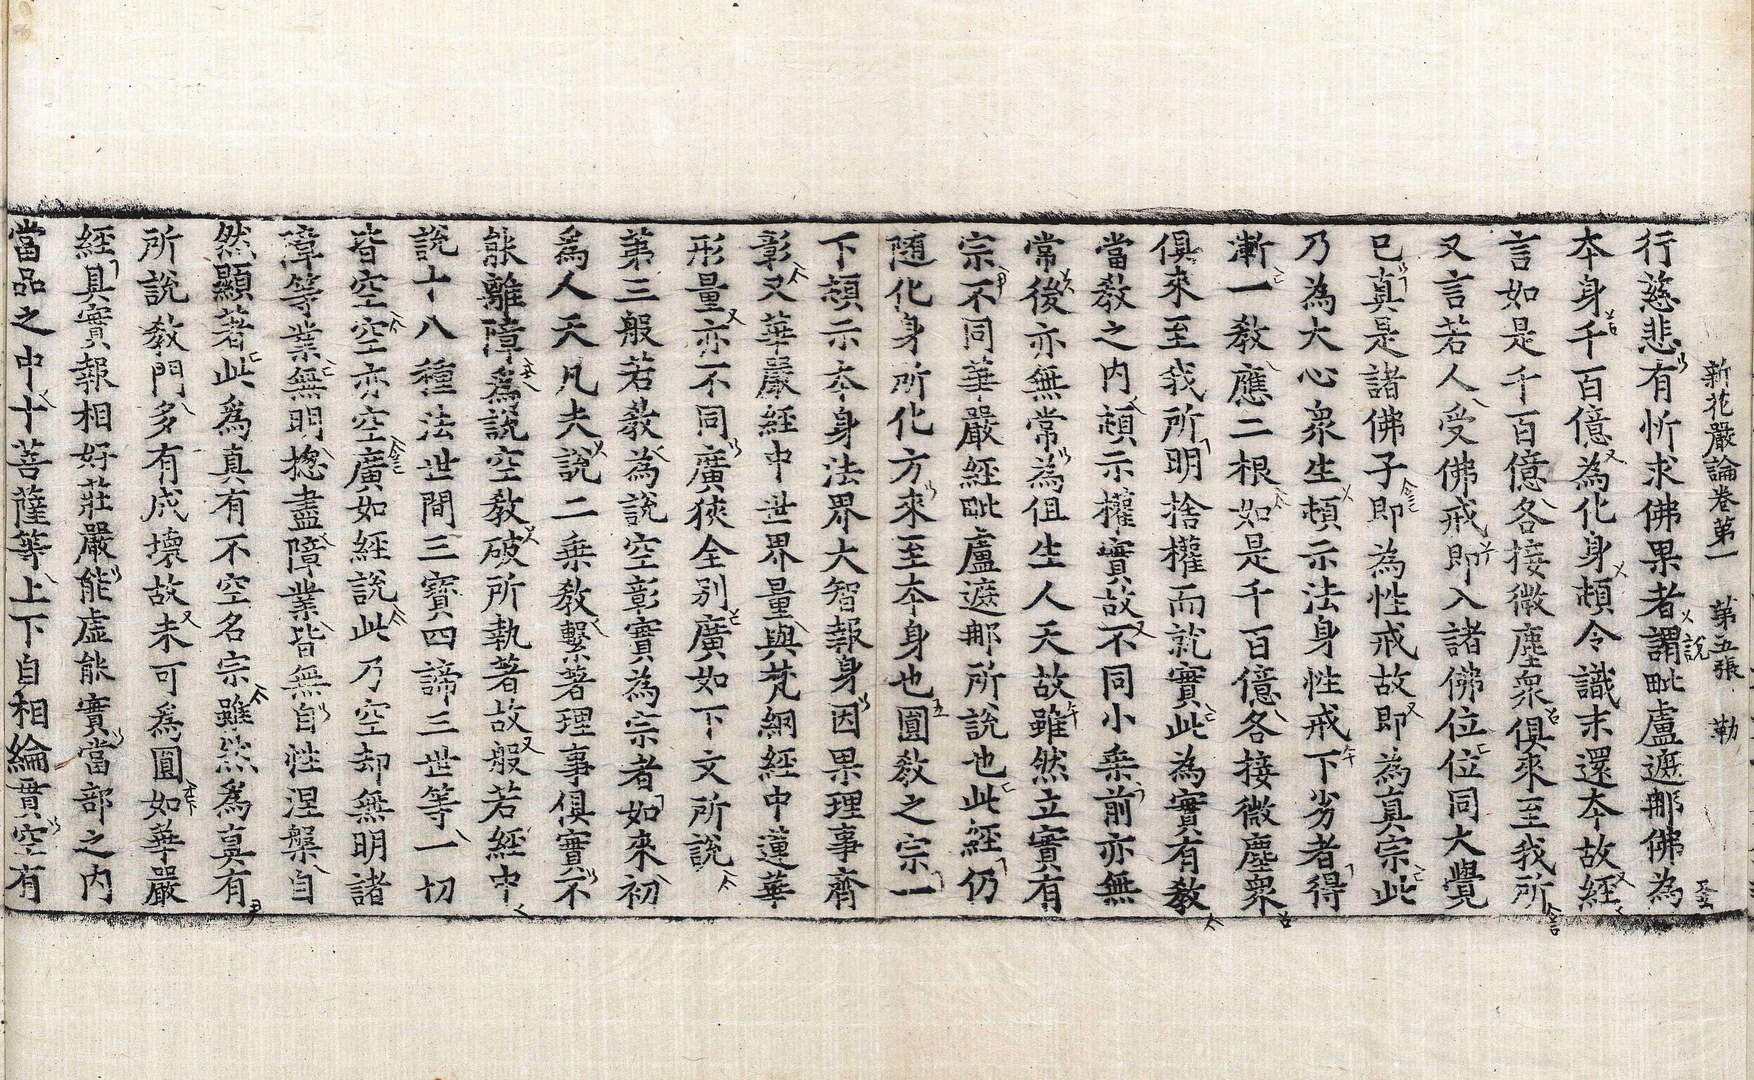 新花嚴論卷第一　第五張　勒
行慈悲有忻求佛果者謂毗盧遮那佛為
本身千百億為化身頓令識末還本故經
言如是千百億各接微塵衆俱來至我所
又言若人受佛戒即入諸佛位位同大覺
已真是諸佛子即為性戒故即為真宗此
乃為大心衆生頓示法身性戒下劣者得
漸一教應二根如是千百億各接微塵衆
俱來至我所明捨權而就實此為實有教
當教之內頓示權實故不同小乗前亦無
常後亦無常為但生人天故雖然立實有
宗不同華嚴經毗盧遮那所說也此經仍
随化身所化方來至本身也圓教之宗一
下頓示本身法界大智報身因果理事齊
彰又華嚴經中世界量與梵網經中蓮華
形量亦不同廣狹全別廣如下文所說
第三般若教為說空彰實為宗者如來初
為人天凡夫說二乗教繫著理事俱實不
能離障為說空教破所執著故般若經中
說十八種法世間三寶四諦三世等一切
皆空空亦空廣如經說此乃空却無明諸
障等業無明揔盡障業皆無自性涅槃自
然顯著此為真有不空名宗雖然為真有
所說教門多有成壞故未可為圓如華嚴
經具實報相好莊嚴能虛能實當部之內
當品之中十菩薩等上下自相綸貫空有